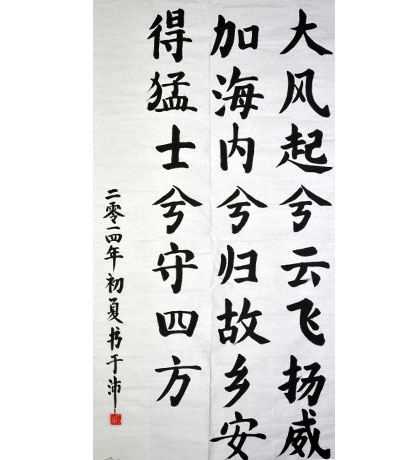 大风起兮云飞扬威
加海内兮归故乡安
得猛士兮守四方
二零一四年初夏书于沛